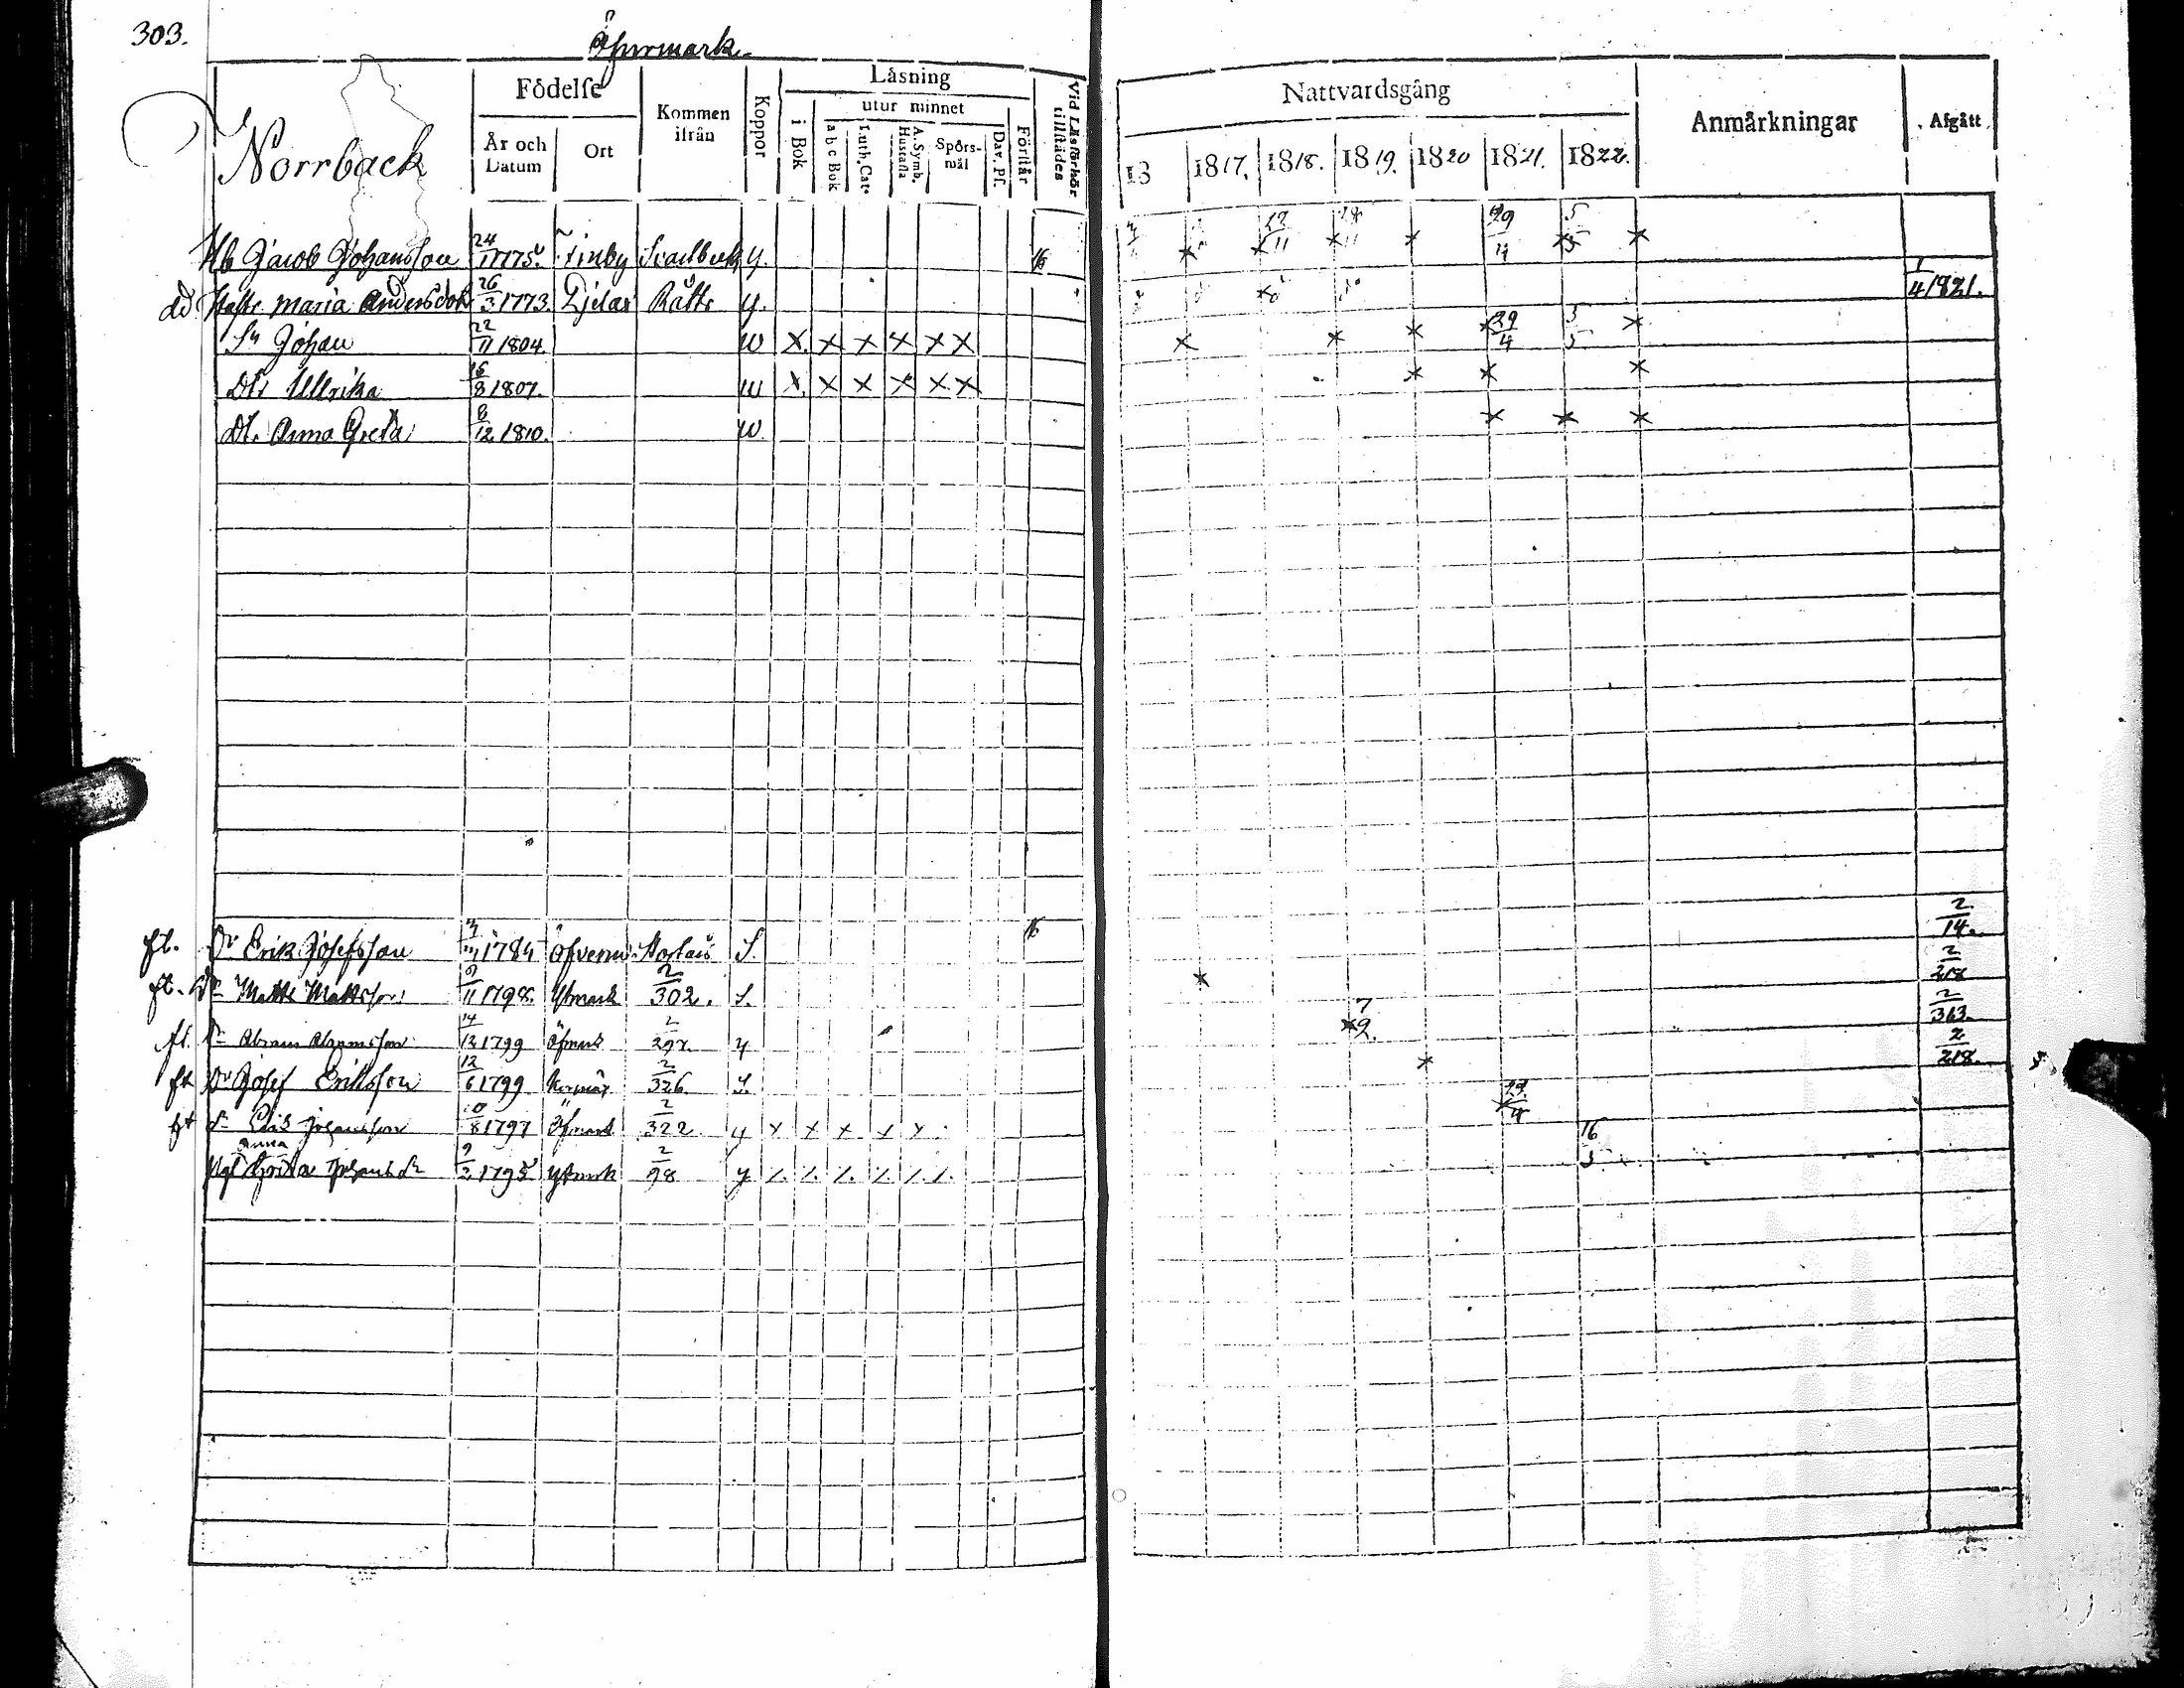 303.
Öfvermark
Norrback
Födelse
År och Datum
Ort
Kommen ifrån
Koppor
Läsning
i Bok
utur minnet
a b c Bok
Luth. Cat.
A. Symb. Hustafla
Spörs-mål
Dav. Ps.
Förstår
Vid Läsförhör tillstädes
Nattvardsgång
18
1817.
1818.
1819.
1820
1821.
1822.
Anmärkningar
Afgått
Hb Jacob Johansson 24/1 1775. Finby y. 16 12/11 29/4 5/5
dd Hustr Maria Andersdotr 26/3 1773. Gjelax Rålts y. 1/4 1821.
Sn Johan 22/11 1804. w × × × × × × 29/4 5/5
Dtr Ullrika 16/8 1807. w × × × × × ×
Dt. Anna Greta 6/12 1810. w
fl. Dr Erik Josefsson 1784 Öfverm. S. 16 2/14.
fl. Dr Matts Mattsson 9/11 1798. Yttmark 2/302. S. 2/218
fl. Dr Abram Abramsson 14/12 1799 Öfmark 2/297. y 7/2. 2/363.
fl. Dr Josef Eriksson 12/6 1799 2/326. S. 2/218.
Dr Erik Johansson 10/8 1797 Öfmark 2/322 y × × × × × 29/4
Pig. Anna Greta Johansdr 9/2 1795 Yttmark 2/98 y 16/3